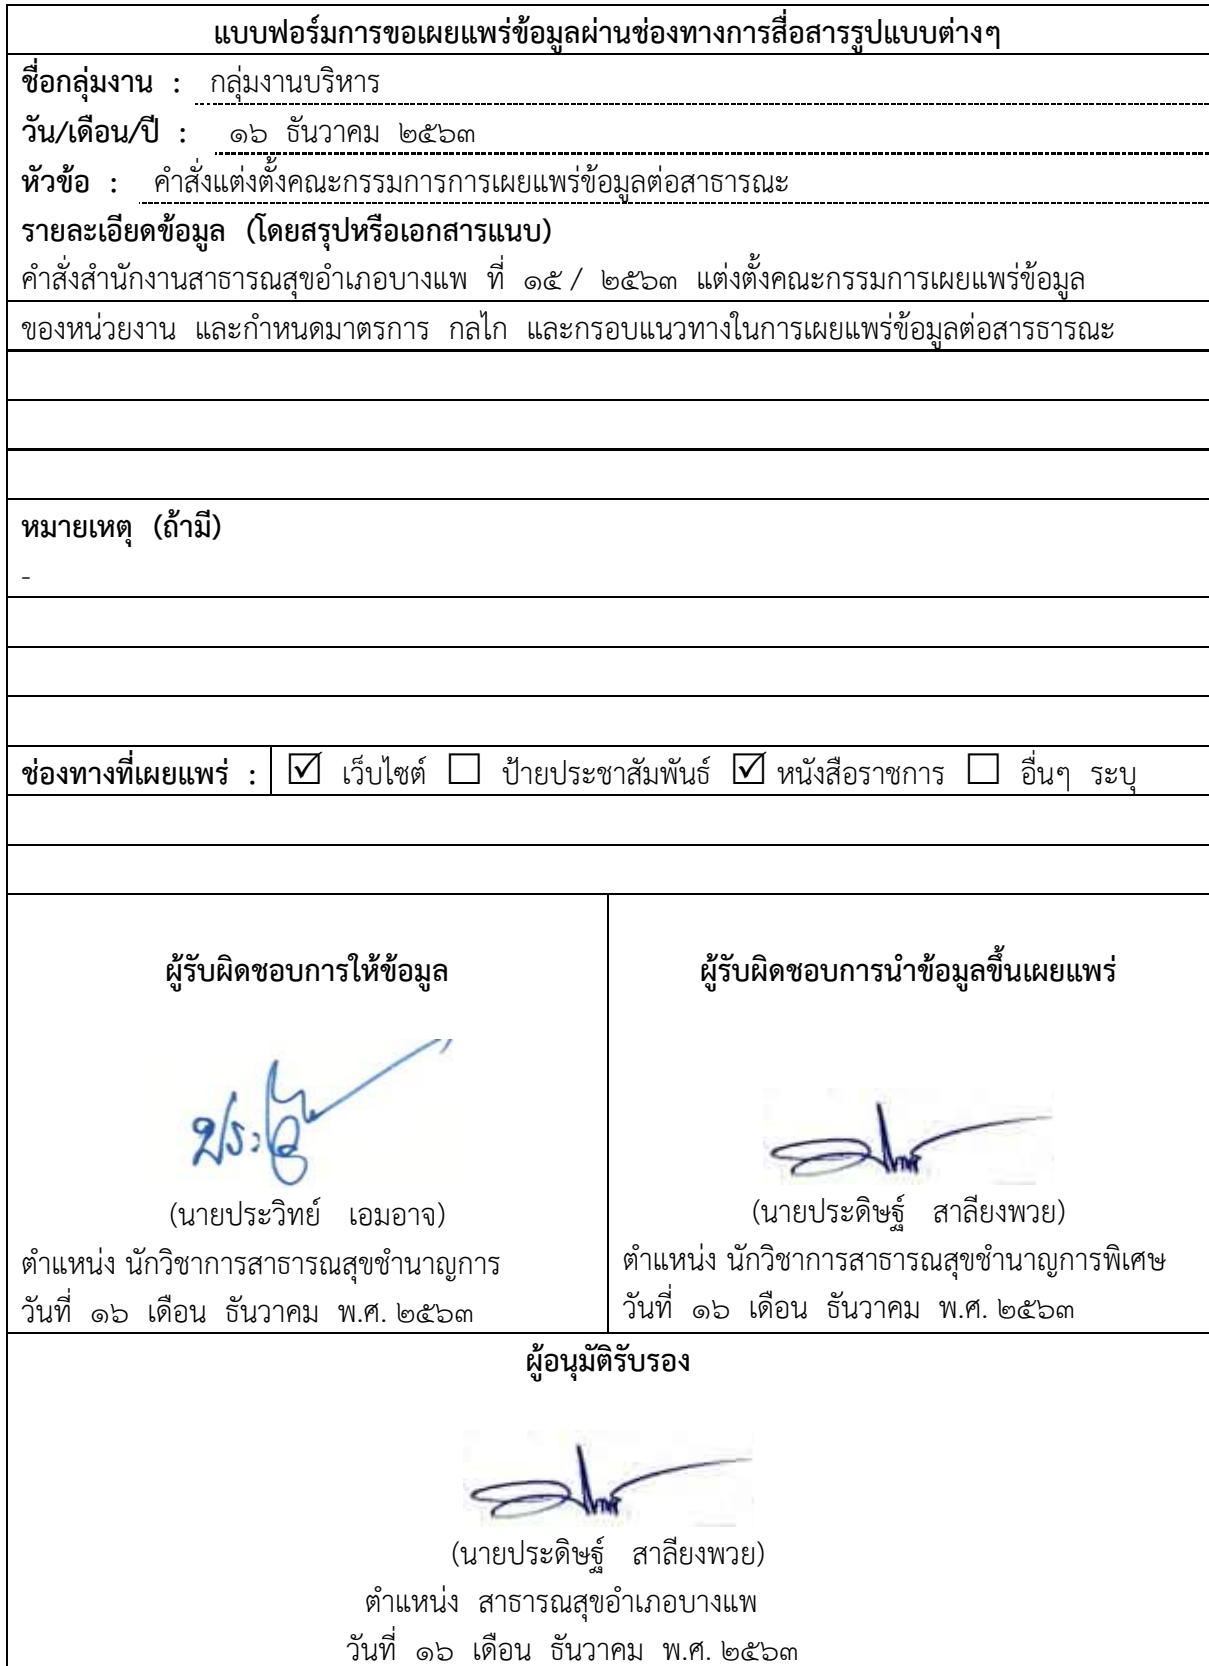 แบบฟอร์มการขอเผยแพร่ข้อมูลผ่านช่องทางการสื่อสารรูปแบบต่างๆ
ชื่อกลุ่มงาน : กลุ่มงานบริหาร
วัน/เดือน/ปี : ๑๖ ธันวาคม ๒๕๖๓
หัวข้อ : คำสั่งแต่งตั้งคณะกรรมการการเผยแพร่ข้อมูลต่อสาธารณะ
รายละเอียดข้อมูล (โดยสรุปหรือเอกสารแนบ)
คำสั่งสำนักงานสาธารณสุขอำเภอบางแพ ที่ ๑๕ / ๒๕๖๓ แต่งตั้งคณะกรรมการเผยแพร่ข้อมูล
ของหน่วยงาน และกำหนดมาตรการ กลไก และกรอบแนวทางในการเผยแพร่ข้อมูลต่อสารธารณะ
หมายเหตุ (ถ้ามี)
-
ช่องทางที่เผยแพร่ : ☑ เว็บไซต์ ☐ ป้ายประชาสัมพันธ์ ☑ หนังสือราชการ ☐ อื่นๆ ระบุ
ผู้รับผิดชอบการให้ข้อมูล
(นายประวิทย์ เอมอาจ)
ตำแหน่ง นักวิชาการสาธารณสุขชำนาญการ
วันที่ ๑๖ เดือน ธันวาคม พ.ศ. ๒๕๖๓
ผู้รับผิดชอบการนำข้อมูลขึ้นเผยแพร่
(นายประดิษฐ์ สาลียงพวย)
ตำแหน่ง นักวิชาการสาธารณสุขชำนาญการพิเศษ
วันที่ ๑๖ เดือน ธันวาคม พ.ศ. ๒๕๖๓
ผู้อนุมัติรับรอง
(นายประดิษฐ์ สาลียงพวย)
ตำแหน่ง สาธารณสุขอำเภอบางแพ
วันที่ ๑๖ เดือน ธันวาคม พ.ศ. ๒๕๖๓